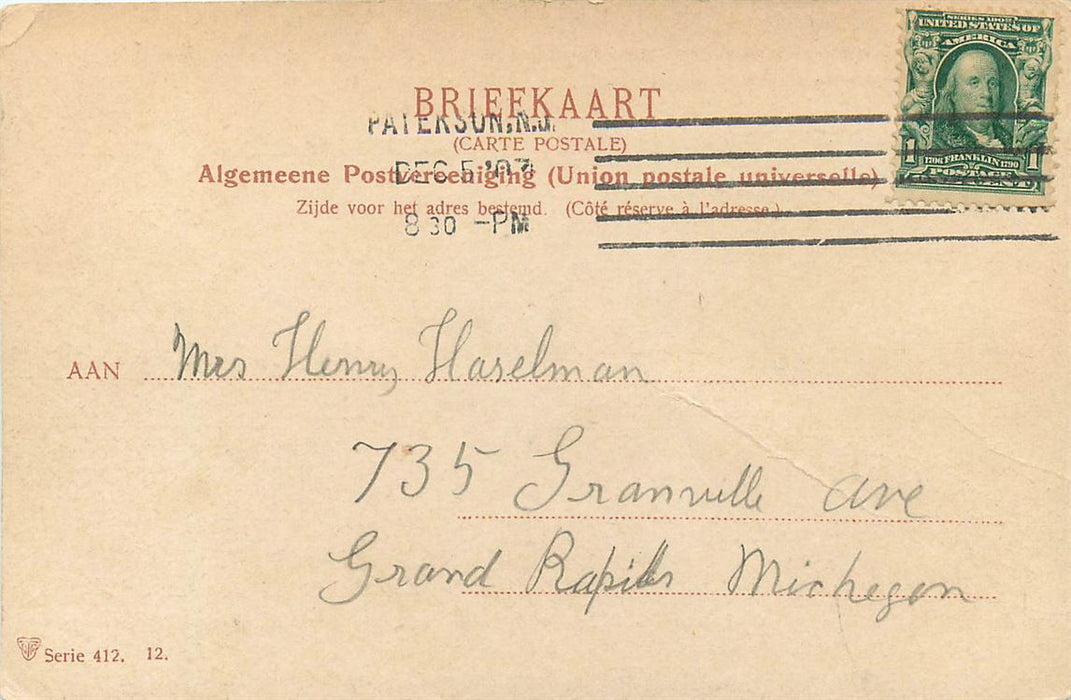 SERIES 1902
UNITED STATES OF
AMERICA
1706 FRANKLIN 1790
1 POSTAGE 1
BRIEFKAART
PATERSON, N.J.
(CARTE POSTALE)
DEC 5 '07
Algemeene Postvereeniging (Union postale universelle)
Zijde voor het adres bestemd. (Côté réserve à l'adresse.)
8 30 - PM
AAN Mrs Henry Haselman
735 Granville ave
Grand Rapids Michegan
Serie 412. 12.